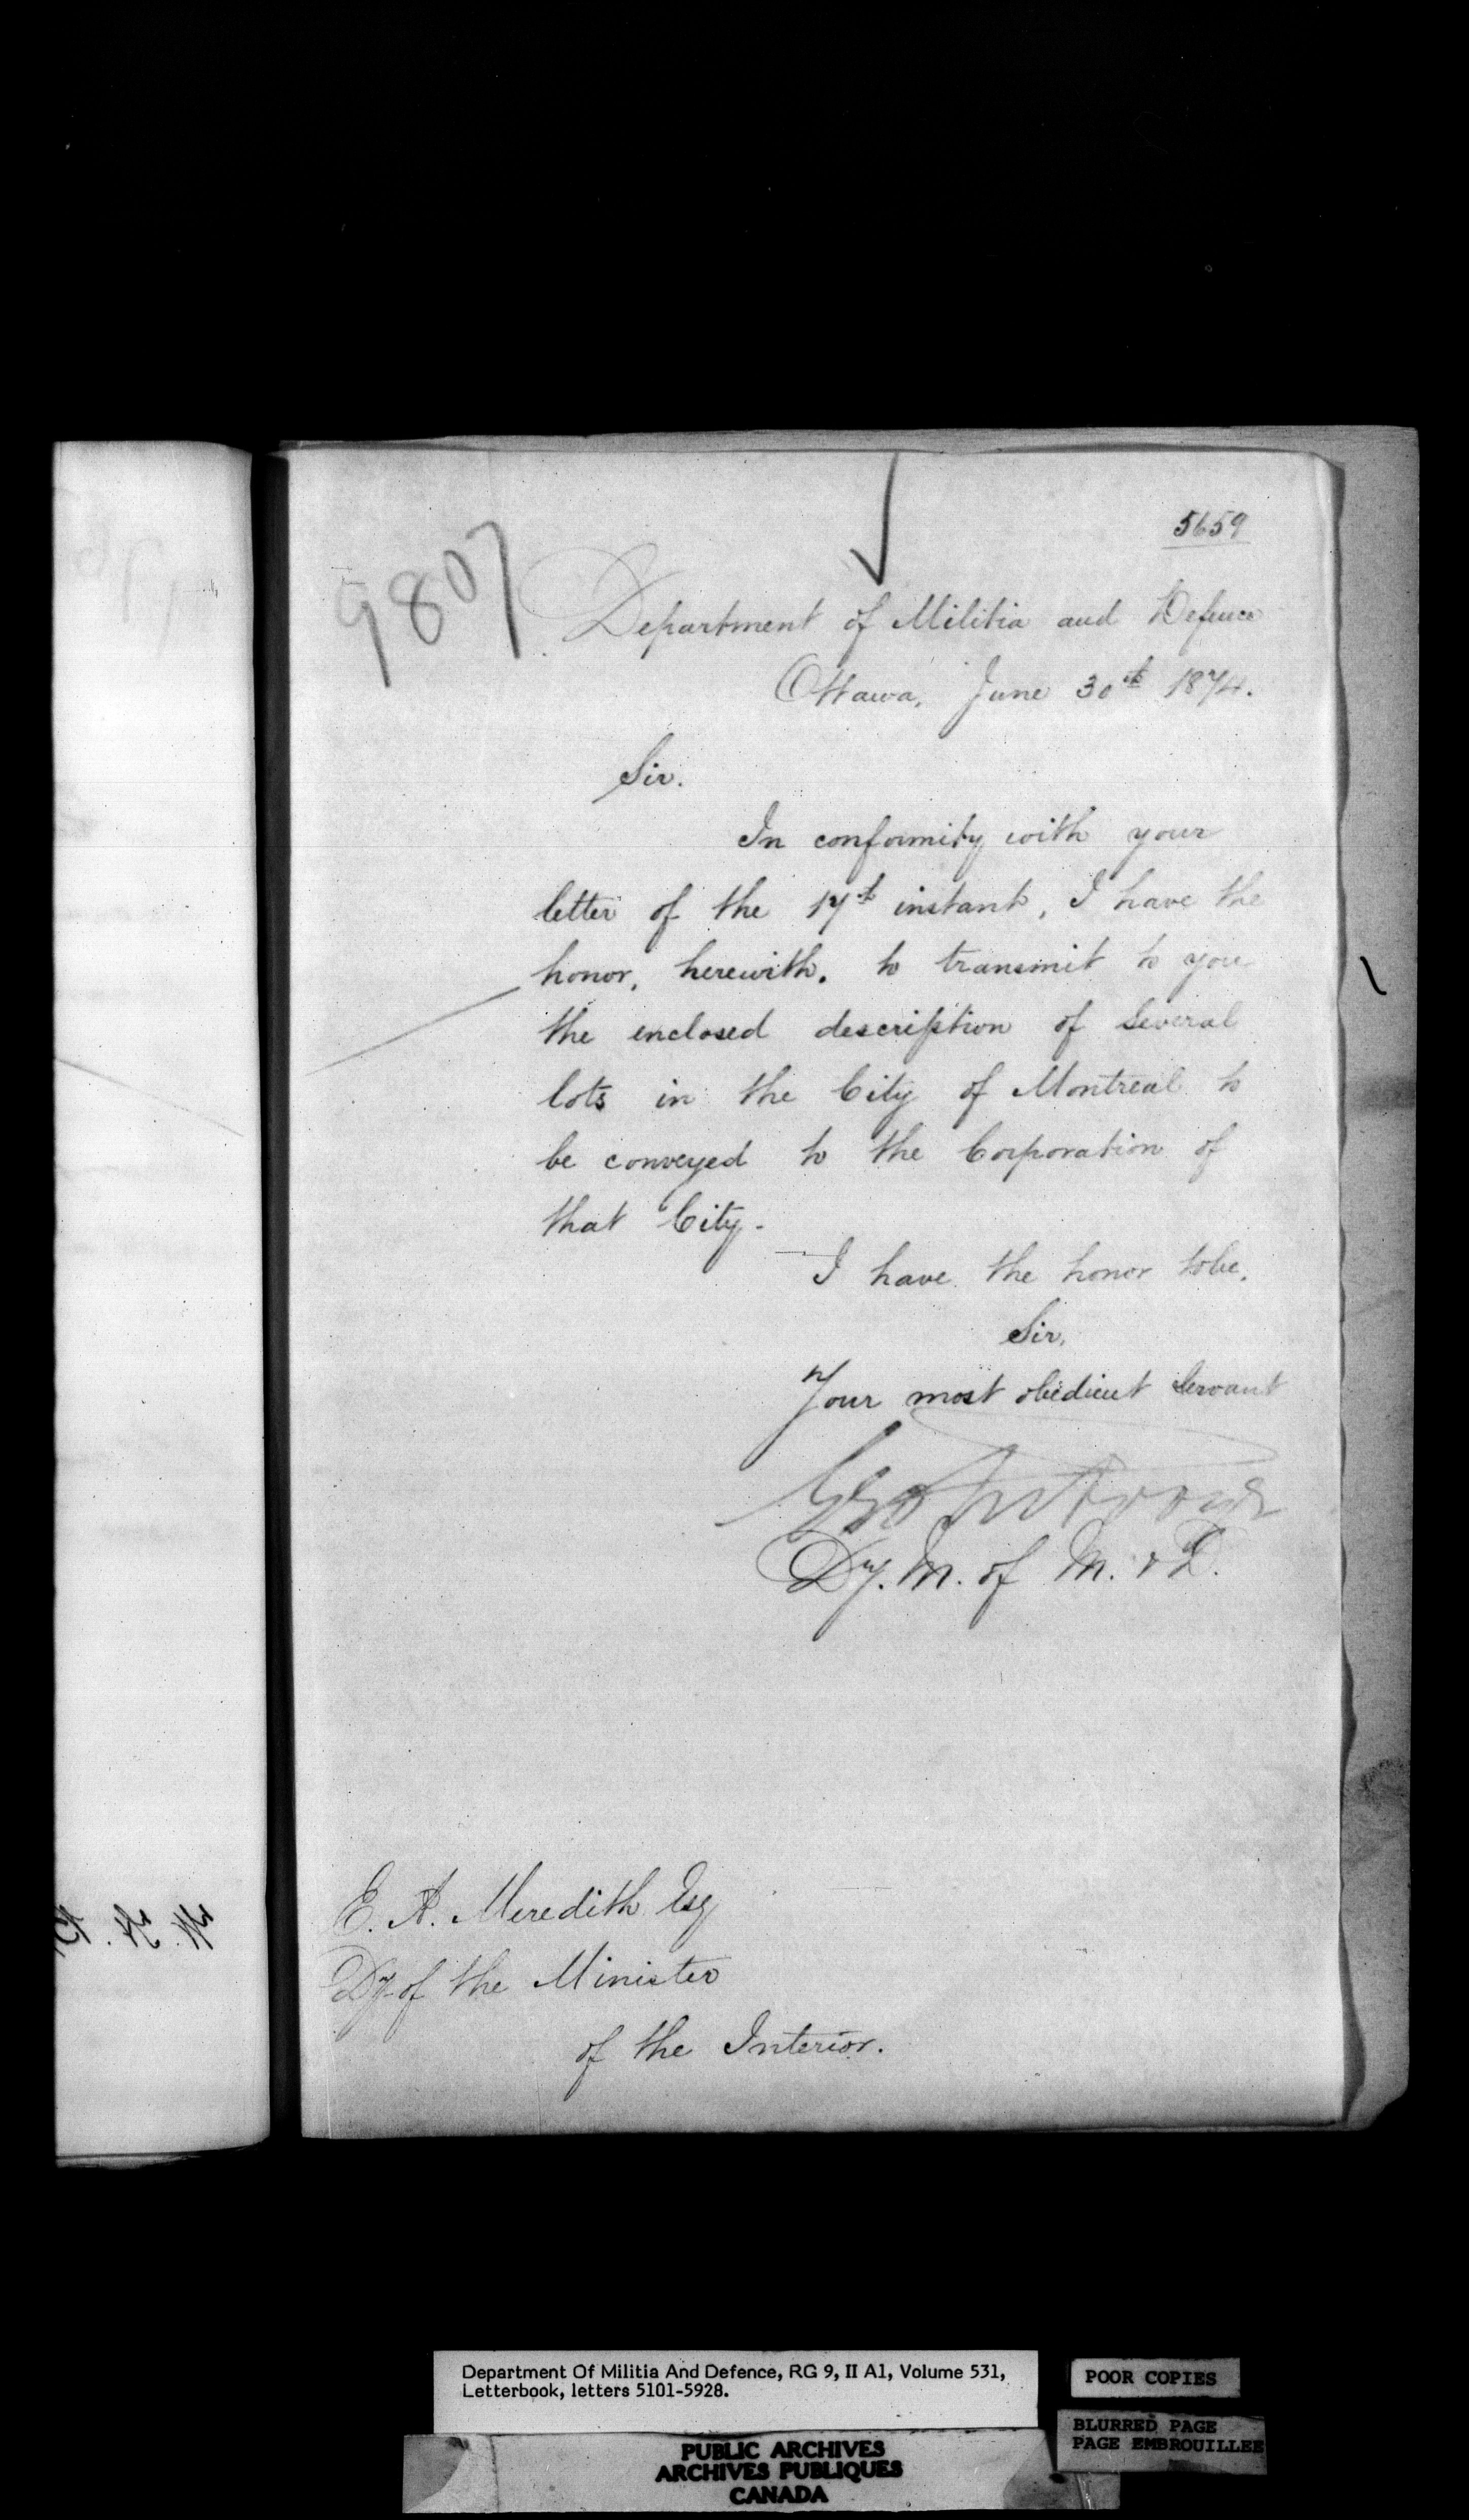 5659
9807
Department of Militia and Defence
Ottawa, June 30th 1874.
Sir.
In conformity with your
letter of the 17th instant, I have the
honor, herewith, to transmit to you
the enclosed description of several
lots in the City of Montreal to
be conveyed to the Corporation of
that City.
I have the honor to be,
Sir,
Your most obedient Servant
Dy. M. of M. & D.
E. A. Meredith Esq
Dy of the Minister
of the Interior.
Department Of Militia And Defence, RG 9, II A1, Volume 531,
Letterbook, letters 5101-5928.
POOR COPIES
BLURRED PAGE
PAGE EMBROUILLEE
PUBLIC ARCHIVES
ARCHIVES PUBLIQUES
CANADA